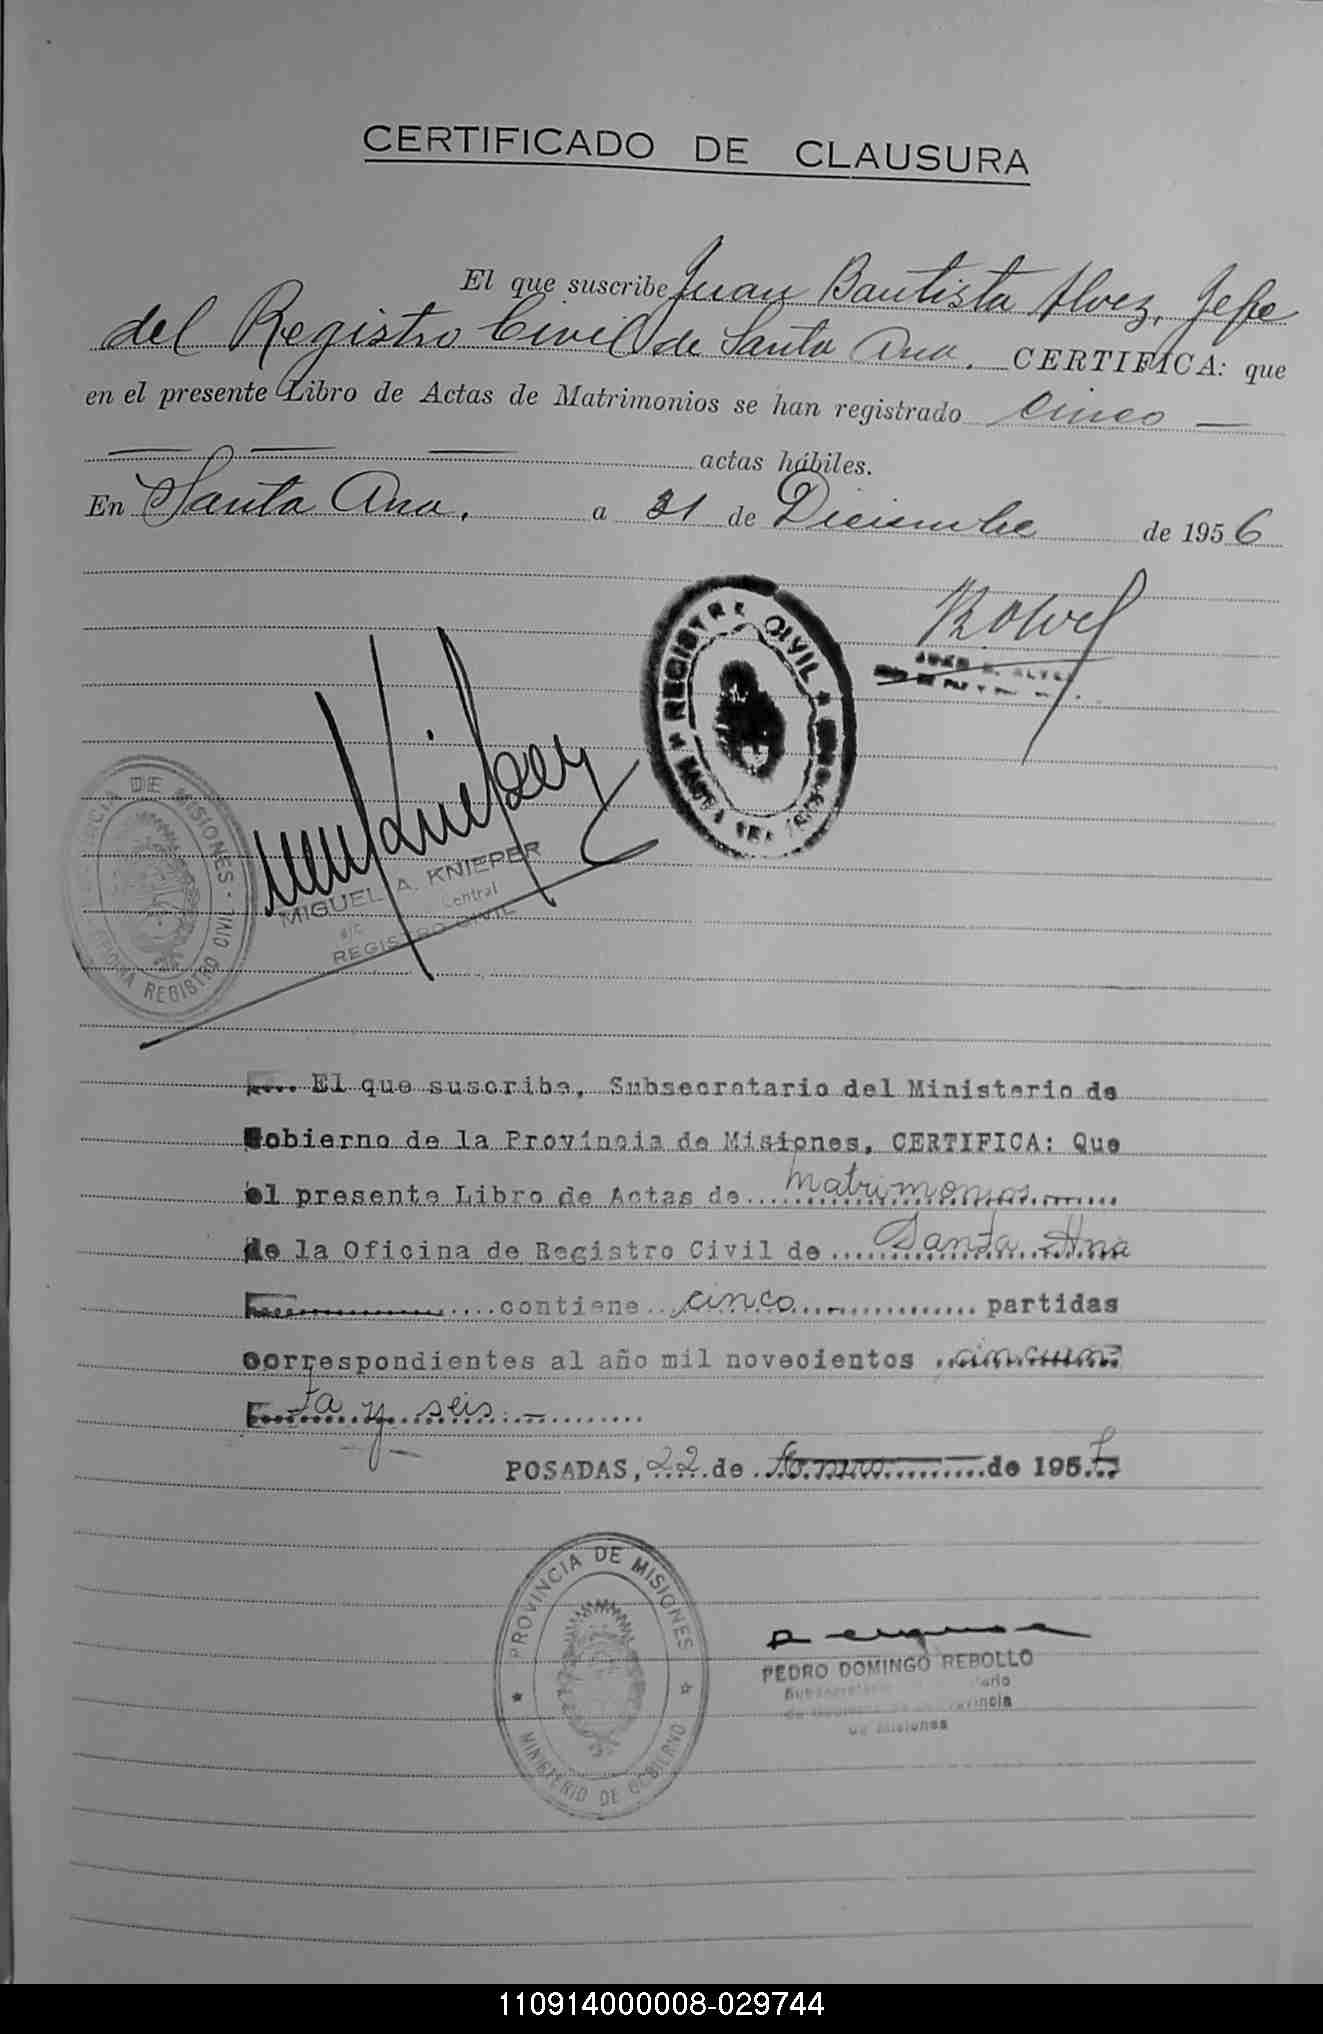 CERTIFICADO DE CLAUSURA
El que suscribe Juan Bautista Alvez, Jefe
del Registro Civil de Santa Ana. CERTIFICA: que
en el presente Libro de Actas de Matrimonios se han registrado cinco —
— — — actas hábiles.
En Santa Ana, a 31 de Diciembre de 1956
REGISTRO CIVIL
PROVINCIA DE MISIONES - REGISTRO CIVIL
MIGUEL A. KNIEPER
a/c Central
REGISTRO CIVIL
El que suscribe, Subsecretario del Ministerio de
Gobierno de la Provincia de Misiones, CERTIFICA: Que
el presente Libro de Actas de matrimonios
de la Oficina de Registro Civil de Santa Ana
contiene cinco partidas
correspondientes al año mil novecientos cincuen
ta y seis. —
POSADAS, 22 de de 1957
PROVINCIA DE MISIONES
MINISTERIO DE GOBIERNO
PEDRO DOMINGO REBOLLO
de Misiones
110914000008-029744